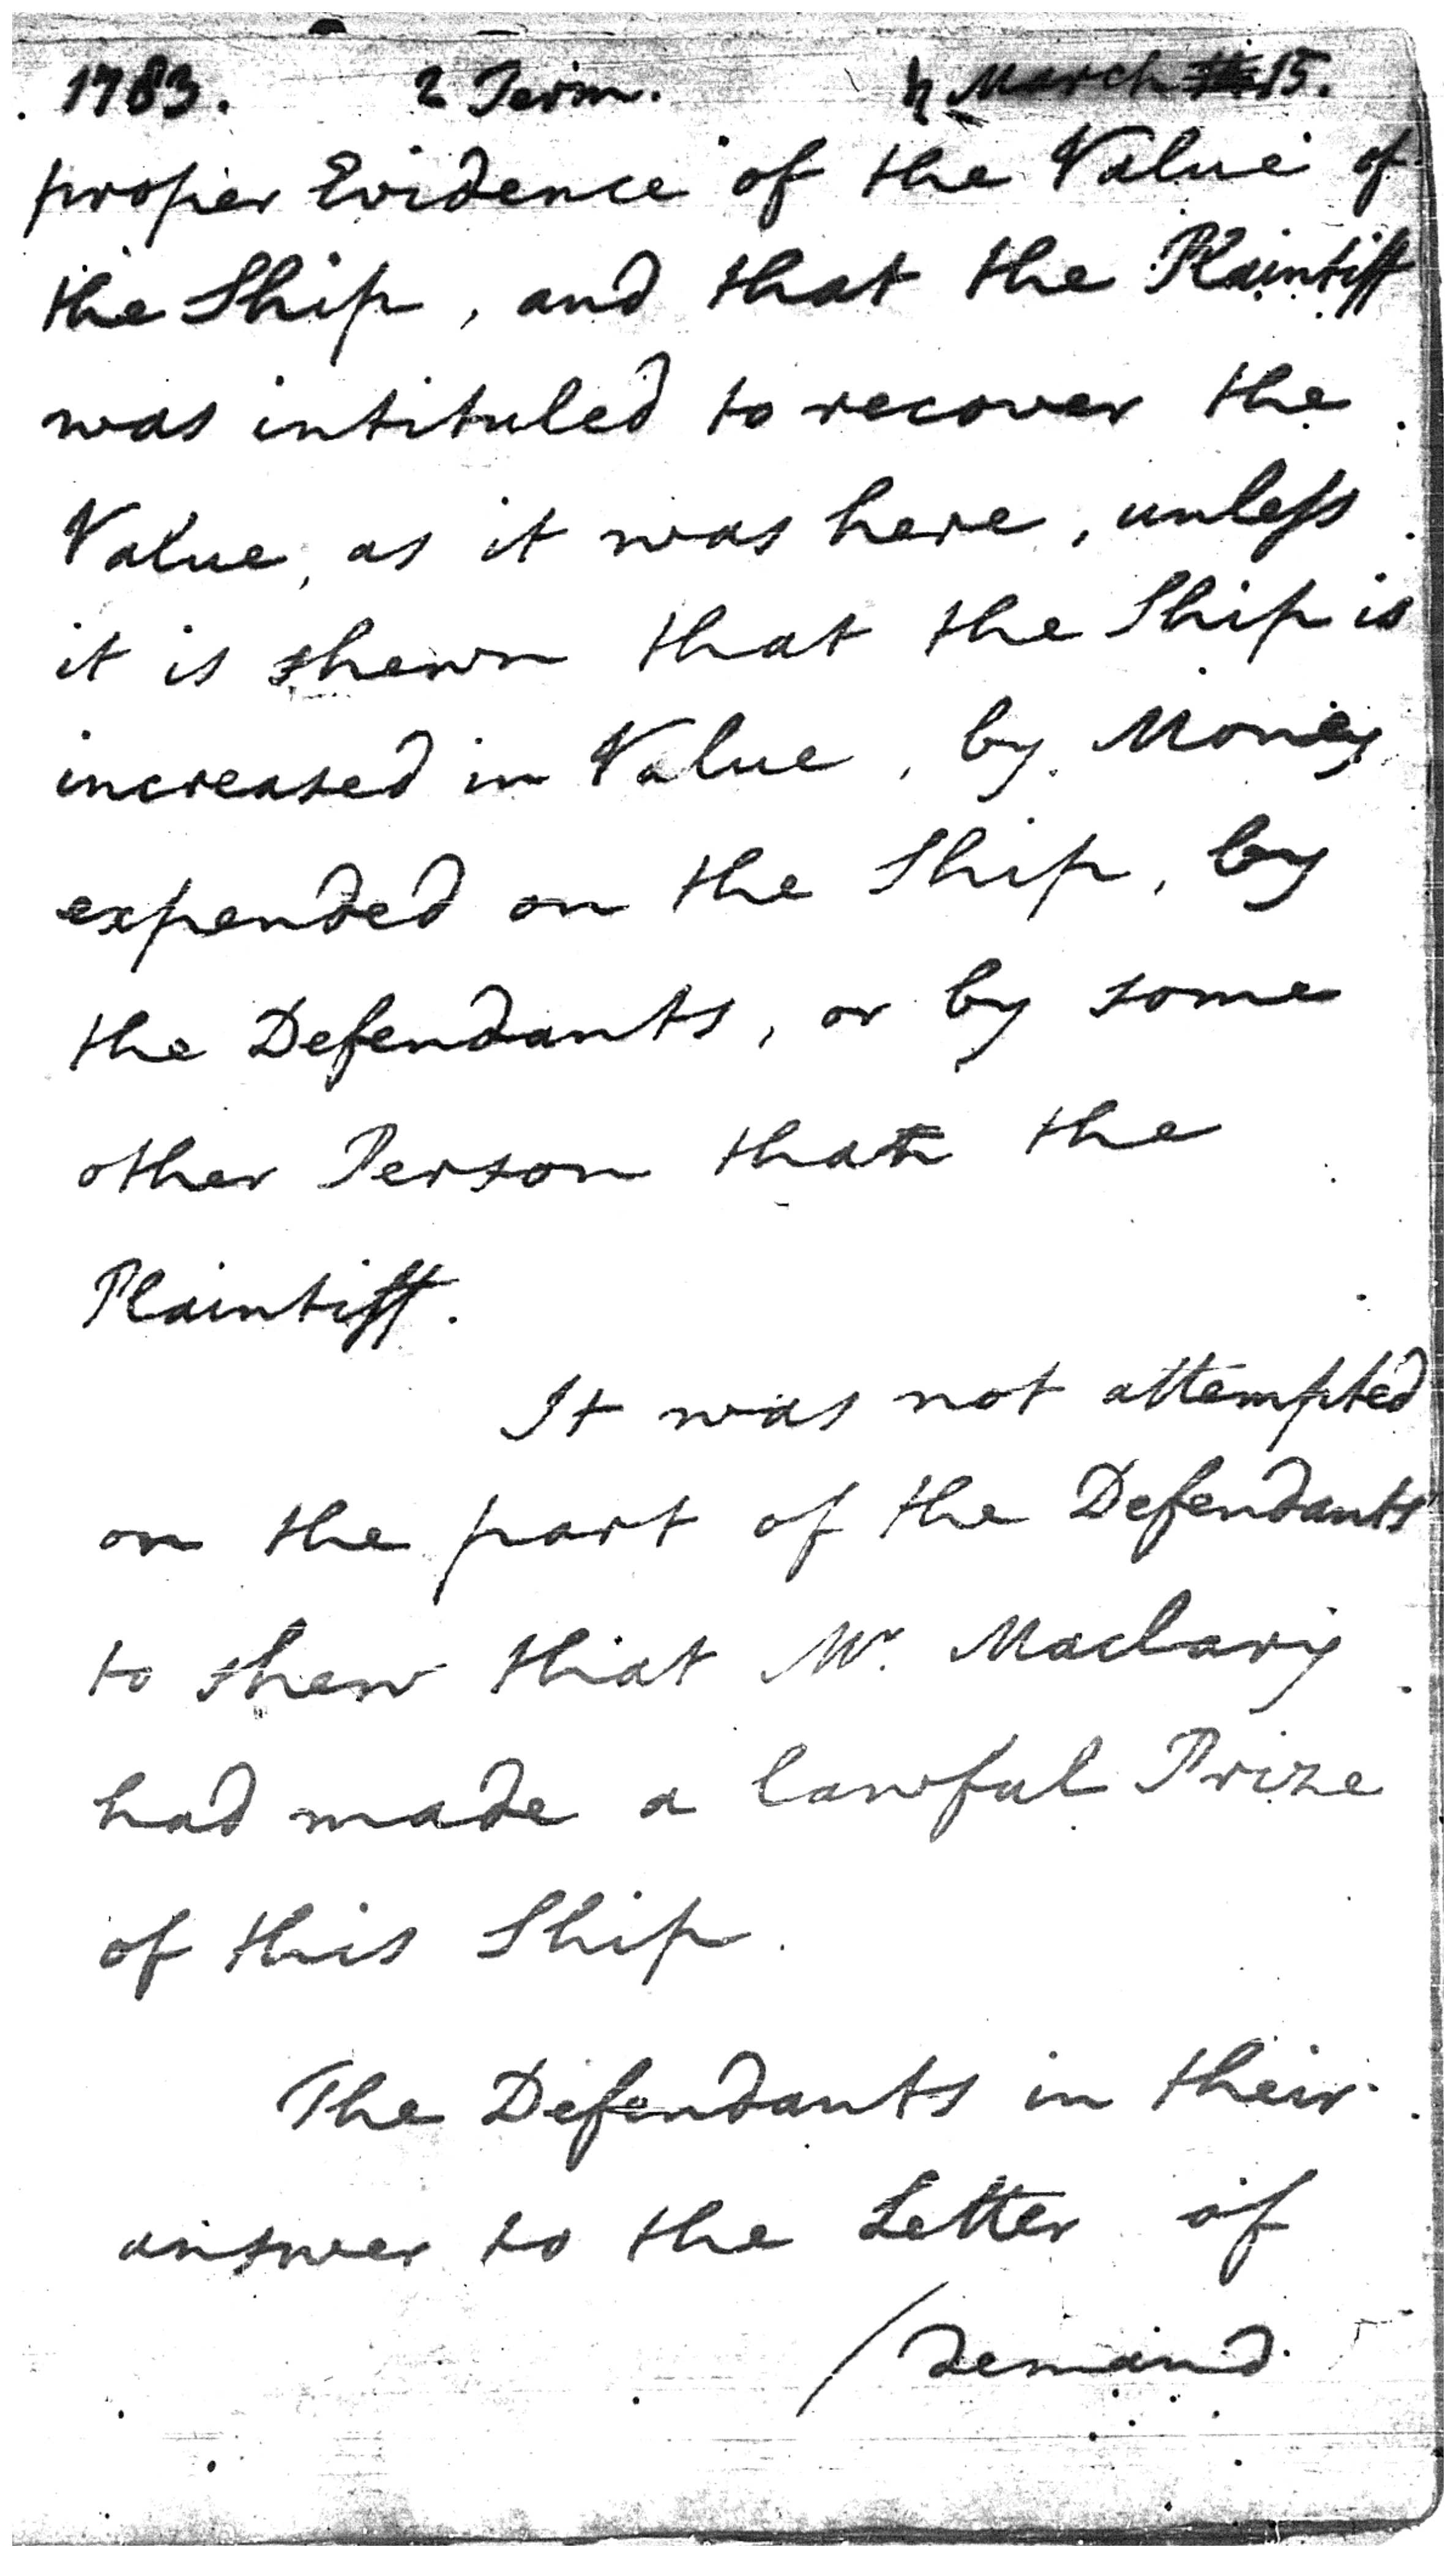 1783. 2 Term. ♄ March 15.
proper Evidence of the Value of
the Ship, and that the Plaintiff
was intituled to recover the
Value, as it was here, unless
it is shewn that the Ship is
increased in Value, by Money
expended on the Ship, by
the Defendants, or by some
other Person than the
Plaintiff.
It was not attempted
on the part of the Defendants
to shew that Mr. Maclary
had made a lawful Prize
of this Ship.
The Defendants in their
answer to the Letter of
/ demand